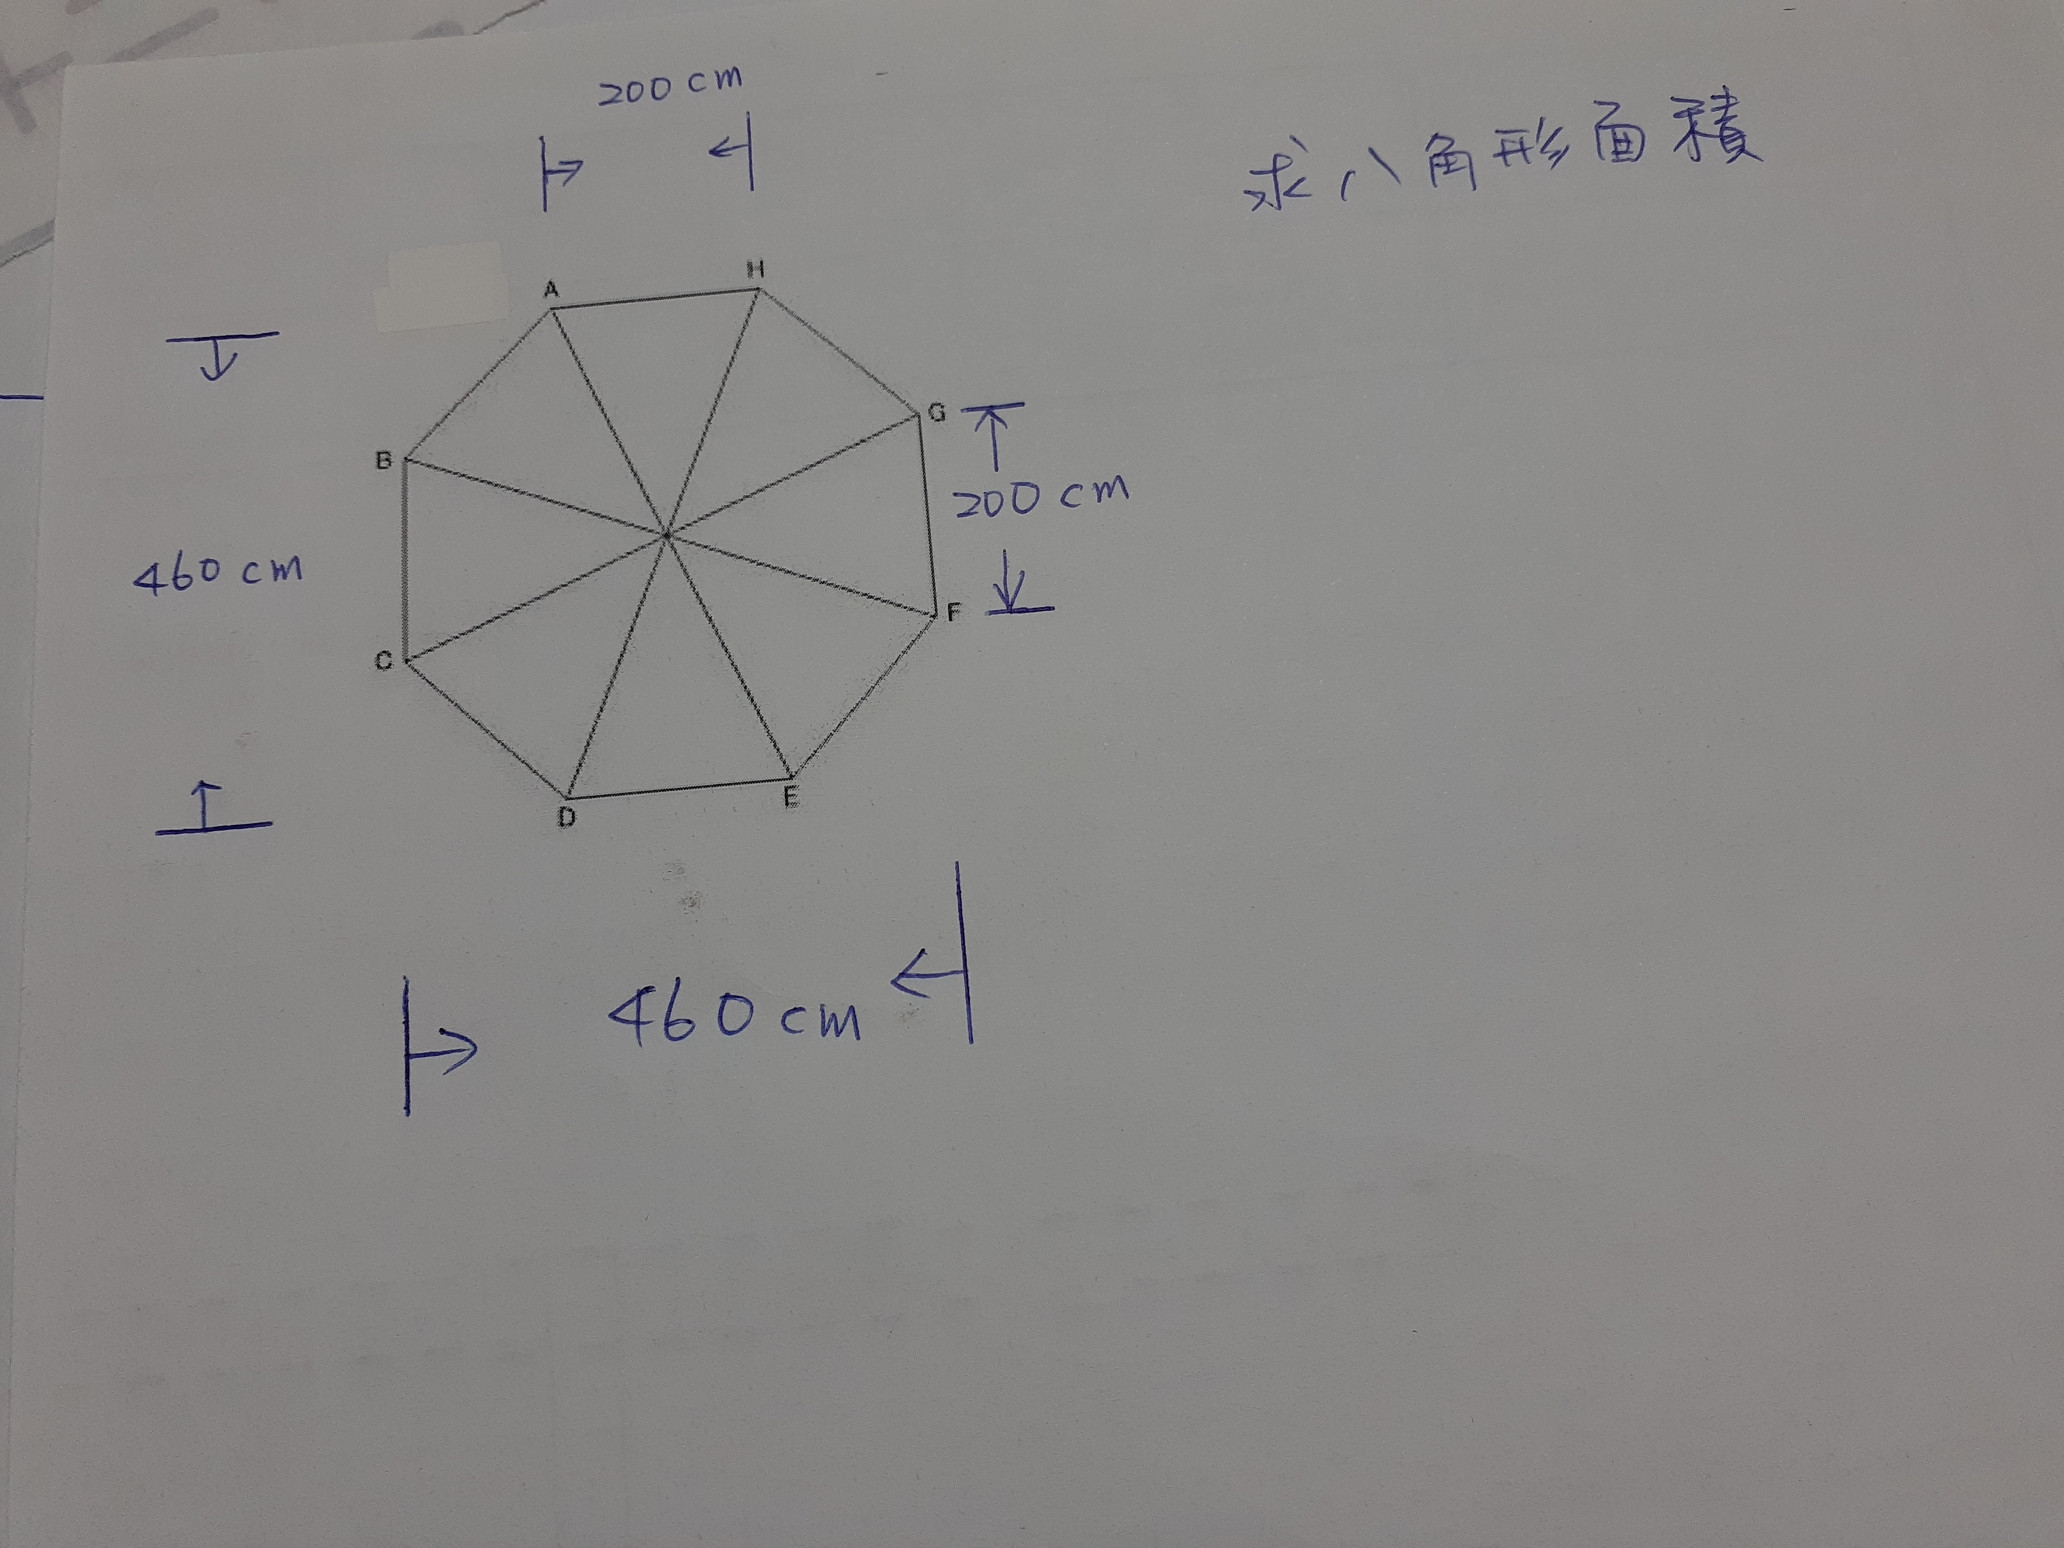 200 cm
求八角形面積
H
A
G
B
200 cm
460 cm
F
C
E
D
460 cm